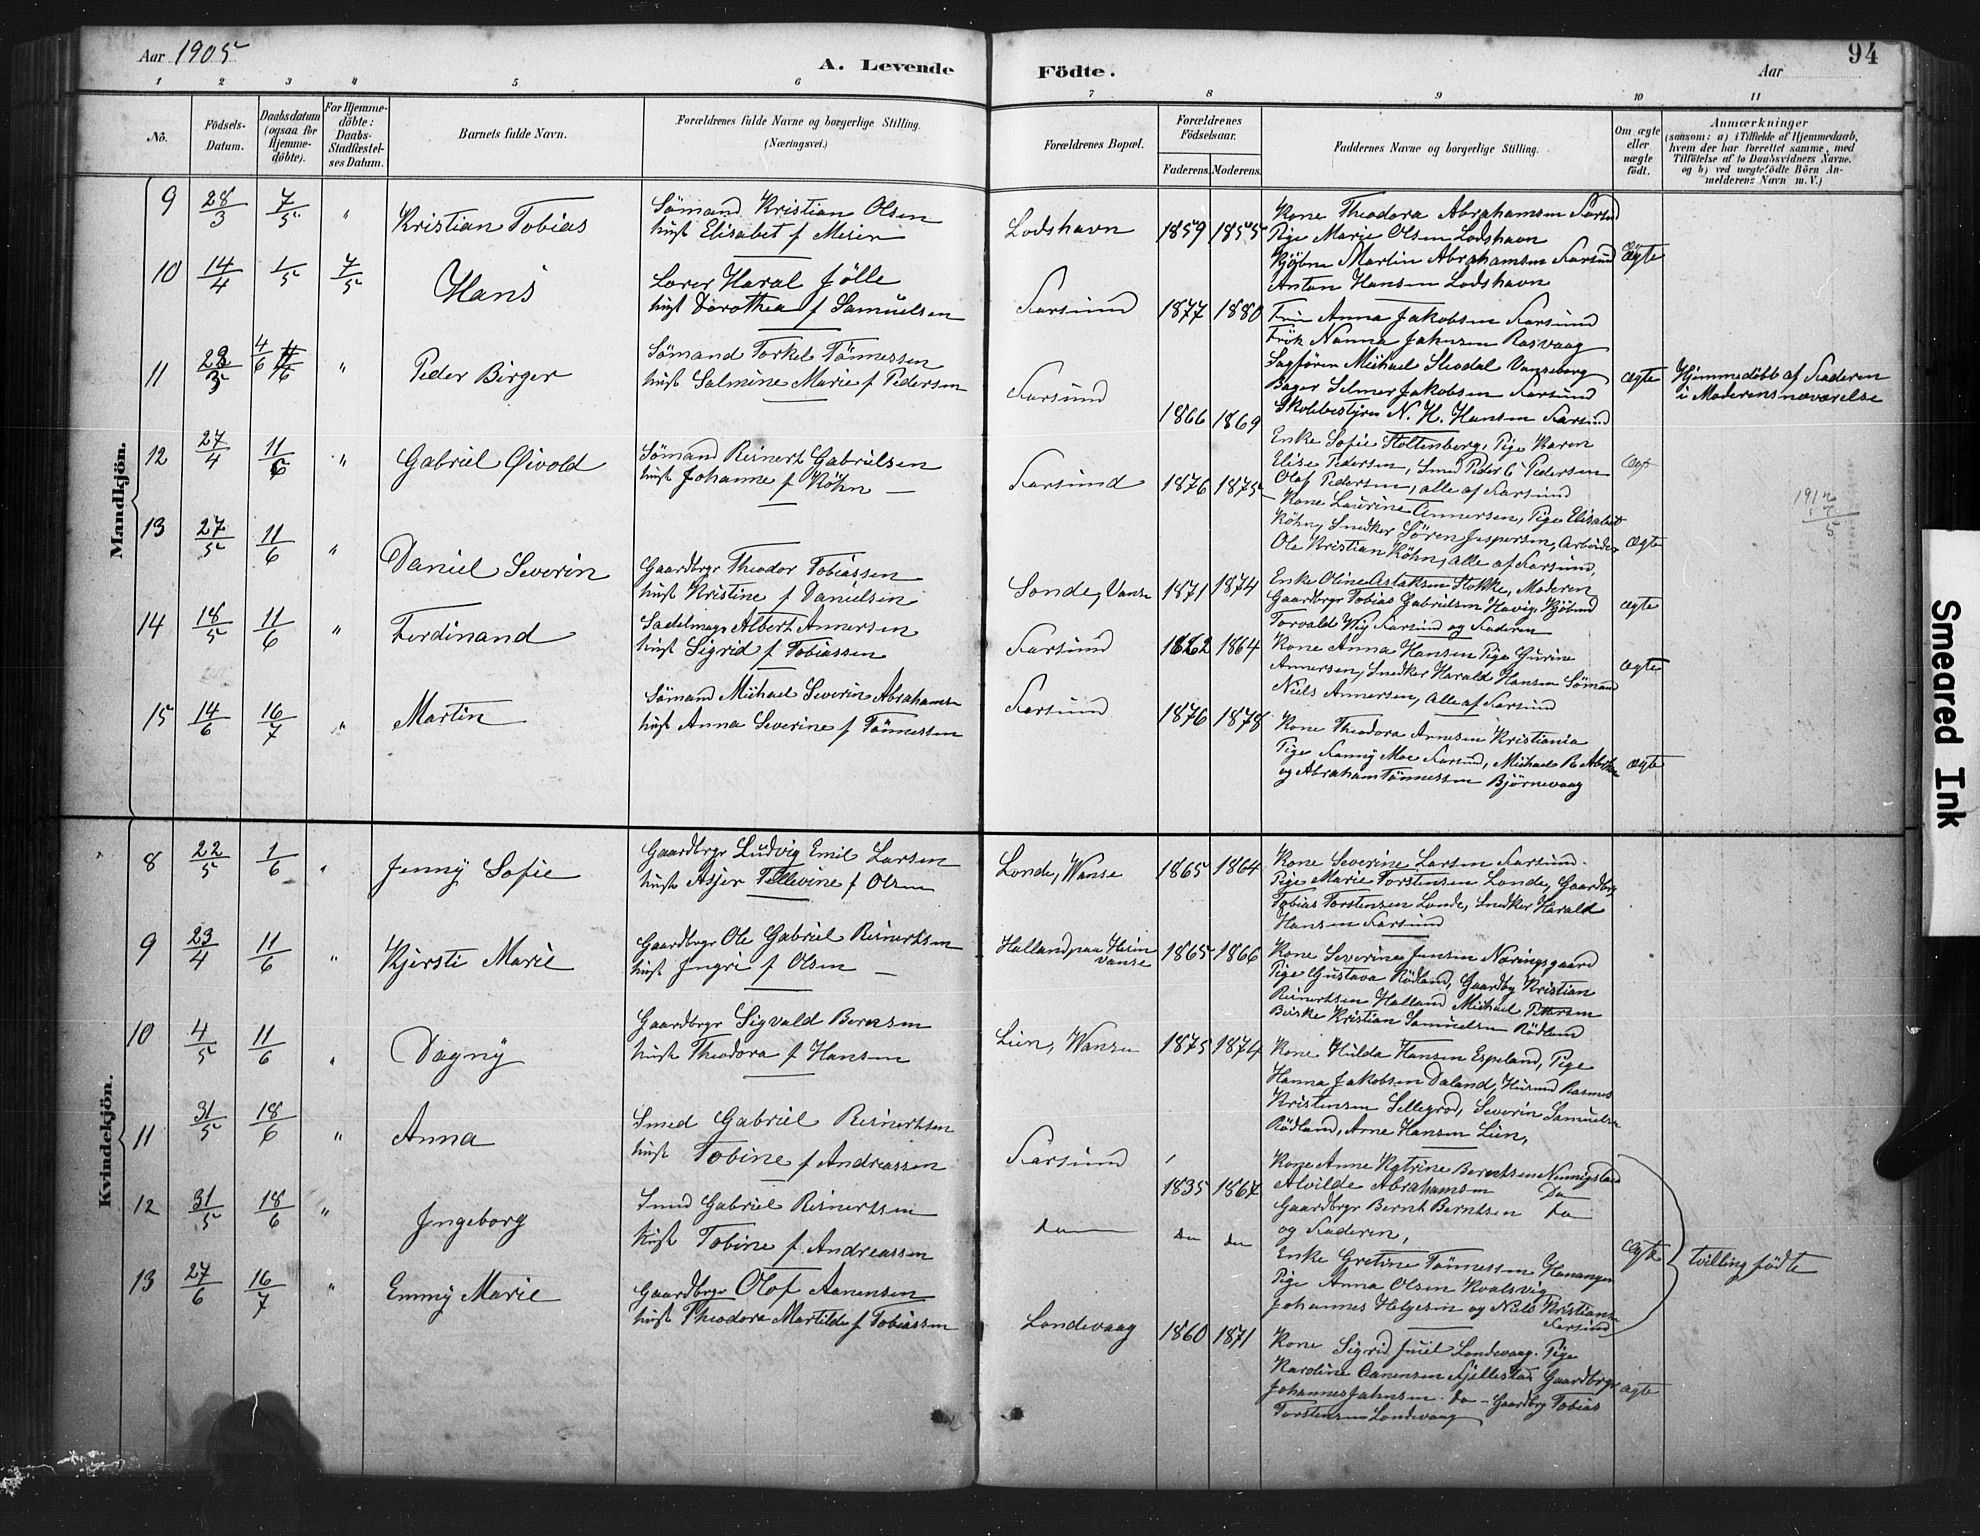 Aar 1905
A. Levende
Födte.
Aar
94
1 2 3 4 5 6 7 8 9 10 11
No.
Födsels-Datum.
Daabsdatum (ogsaa for Hjemme-döbte).
For Hjemme-döbte: Daabs-Stadfæstel-ses Datum.
Barnets fulde Navn.
Forældrenes fulde Navne og borgerlige Stilling. (Næringsvei.)
Forældrenes Bopæl.
Forældrenes Födselsaar.
Faderens. Moderens.
Faddernes Navne og borgerlige Stilling.
Om ægte eller uægte födt.
Anmærkninger
(saasom: a) i Tilfælde af Hjemmedaab,
hvem der har forrettet samme, med
Tilföielse af to Daabsvidners Navne.
og b) ved uægtefödte Börn An-
melderens Navn m. V.)
Mandkjön.
9 28/3 7/5 " Kristian Tobias
Sömand Kristian Olsen
hust Elisabet f Meier
Lodshavn 1859 1855
Kone Theodora Abrahamsen Farsund
Pige Marie Olsen Lodshavn
Kjöbm Martin Abrahamsen Farsund
Anton Hansen Lodshavn
Ægte
10 14/4 1/5 7/5 Hans
Lærer Haral Jölle
hust Dorothea f Samuelsen
Farsund 1877 1880
Fru Anna Jakobsen Farsund
Frök Nanna Jahnsen Rosvaag
Sagförer Michael Skodal Vanseborg
Bager Selmer Jakobsen Farsund
Skolebestyrer N. H. Hansen Farsund
Ægte
Hjemmedöbt af Faderen
i Moderens nærværelse
11 4/6 " Peder Birger
Sömand Torkel Tönnessen
hust Salmine Marie f Pedersen
Farsund 1866 1869
Enke Sofie Stoltenberg, Pige Karen
Elise Pedersen, Smed Peder C Pedersen
Olaf Pedersen, alle af Farsund
Ægt
12 27/4 11/6 " Gabriel Öivold
Sömand Reinert Gabrielsen
hust Johanne f Köhn
Farsund 1876 1875
Kone Laurine Annersen, Pige Elisabet
Köhn, Snedker Sören Jespersen, Arbeider
Ole Kristian Köhn, alle af Farsund,
Ægte
13 27/5 11/6 " Daniel Severin
Gaardbrgr Theodor Tobiassen
hust Kristine f Danielsen
Londe, Vanse 1871 1874
Enke Oline Aslaksen Stokke, Moderen
Gaardbrgr Tobias Gabrielsen Havig, Kjöbmd
Torvald Wig Farsund og Faderen
Ægte
14 18/5 11/6 " Ferdinand
Sadelmagr Albert Annersen
hust Sigrid f Tobiassen
Farsund 1862 1864
Kone Anna Hansen Pige Gurine
Annersen, Snedker Harald Hansen Sömand
Niels Annersen, Alle af Farsund
Ægte
15 14/6 16/7 " Martin
Sömand Michael Severin Abrahamsn
hust Anna Severine f Tönnessen
Farsund 1876 1878
Kone Theodora Arnesen Kristiania
Pige Fanny Moe Farsund, Michael R
og Abraham Tönnessen Björnevaag
Ægte
Kvindekjön.
8 22/5 1/6 " Jenny Sofie
Gaardbrgr Ludvig Emil Larsen
hust Asjer Tellevine f Olsen
Londe, Wanse 1865 1864
Kone Severine Larsen Farsund.
Pige Marie Torstensen Londe, Gaardbrg
Tobias Torstensen Londe, Snedker Harald
Hansen Farsund
9 23/4 11/6 " Kjersti Marie
Gaardbrgr Ole Gabriel Reinertsen
hust Ingri f Olsen
Halland paa Heien Vanse 1865 1866
Kone Severine Jensen Næringsgaard
Pige Gustava Rödland, Gaardbg Kristian
Reinertsen Halland Michael Pettersen
Beiske Kristian Samuelsen Rödland
10 4/5 11/6 " Dagny
Gaardbrgr Sigvald Bernsen
hust Theodora f Hansen
Lien, Wanse 1875 1874
Kone Hulda Hansen Espeland, Pige
Hanna Jakobsen Daland, Husmd Rasmus
Kristensen Sellegrod, Severin Samuelsen
Rödland, Arne Hansen Lien,
11 31/5 18/6 " Anna
Smed Gabriel Reinertsen
hust Tobine f Andreassen
Farsund 1835 1867
Kone Anne Katrine Berntsen Nennigstad
Alvilde Abrahamsen Do
Gaardbrgr Bernt Berntsen Do
og Faderen,
12 31/5 18/6 " Ingeborg
Smed Gabriel Reinertsen
hust Tobine f. Andreassen
do do do
Enke Gretine Tönnessen Hanangen
Pige Anna Olsen Kvalsvig
Johannes Helgesen og Niels Kristiansen
Farsund
Ægte
tvilling födte
13 27/6 16/7 " Emmy Marie
Gaardbrgr Olof Aanensen
hust Theodora Martilde f Tobiassen
Londevaag 1860 1871
Kone Sigrid Juel Londevaag. Pige
Karoline Aanensen Fjellestad Gaardbrgr
Johannes Jahnsen Do - Gaardbrg Tobias
Torstensen Londevaag
Ægte
Smeared Ink